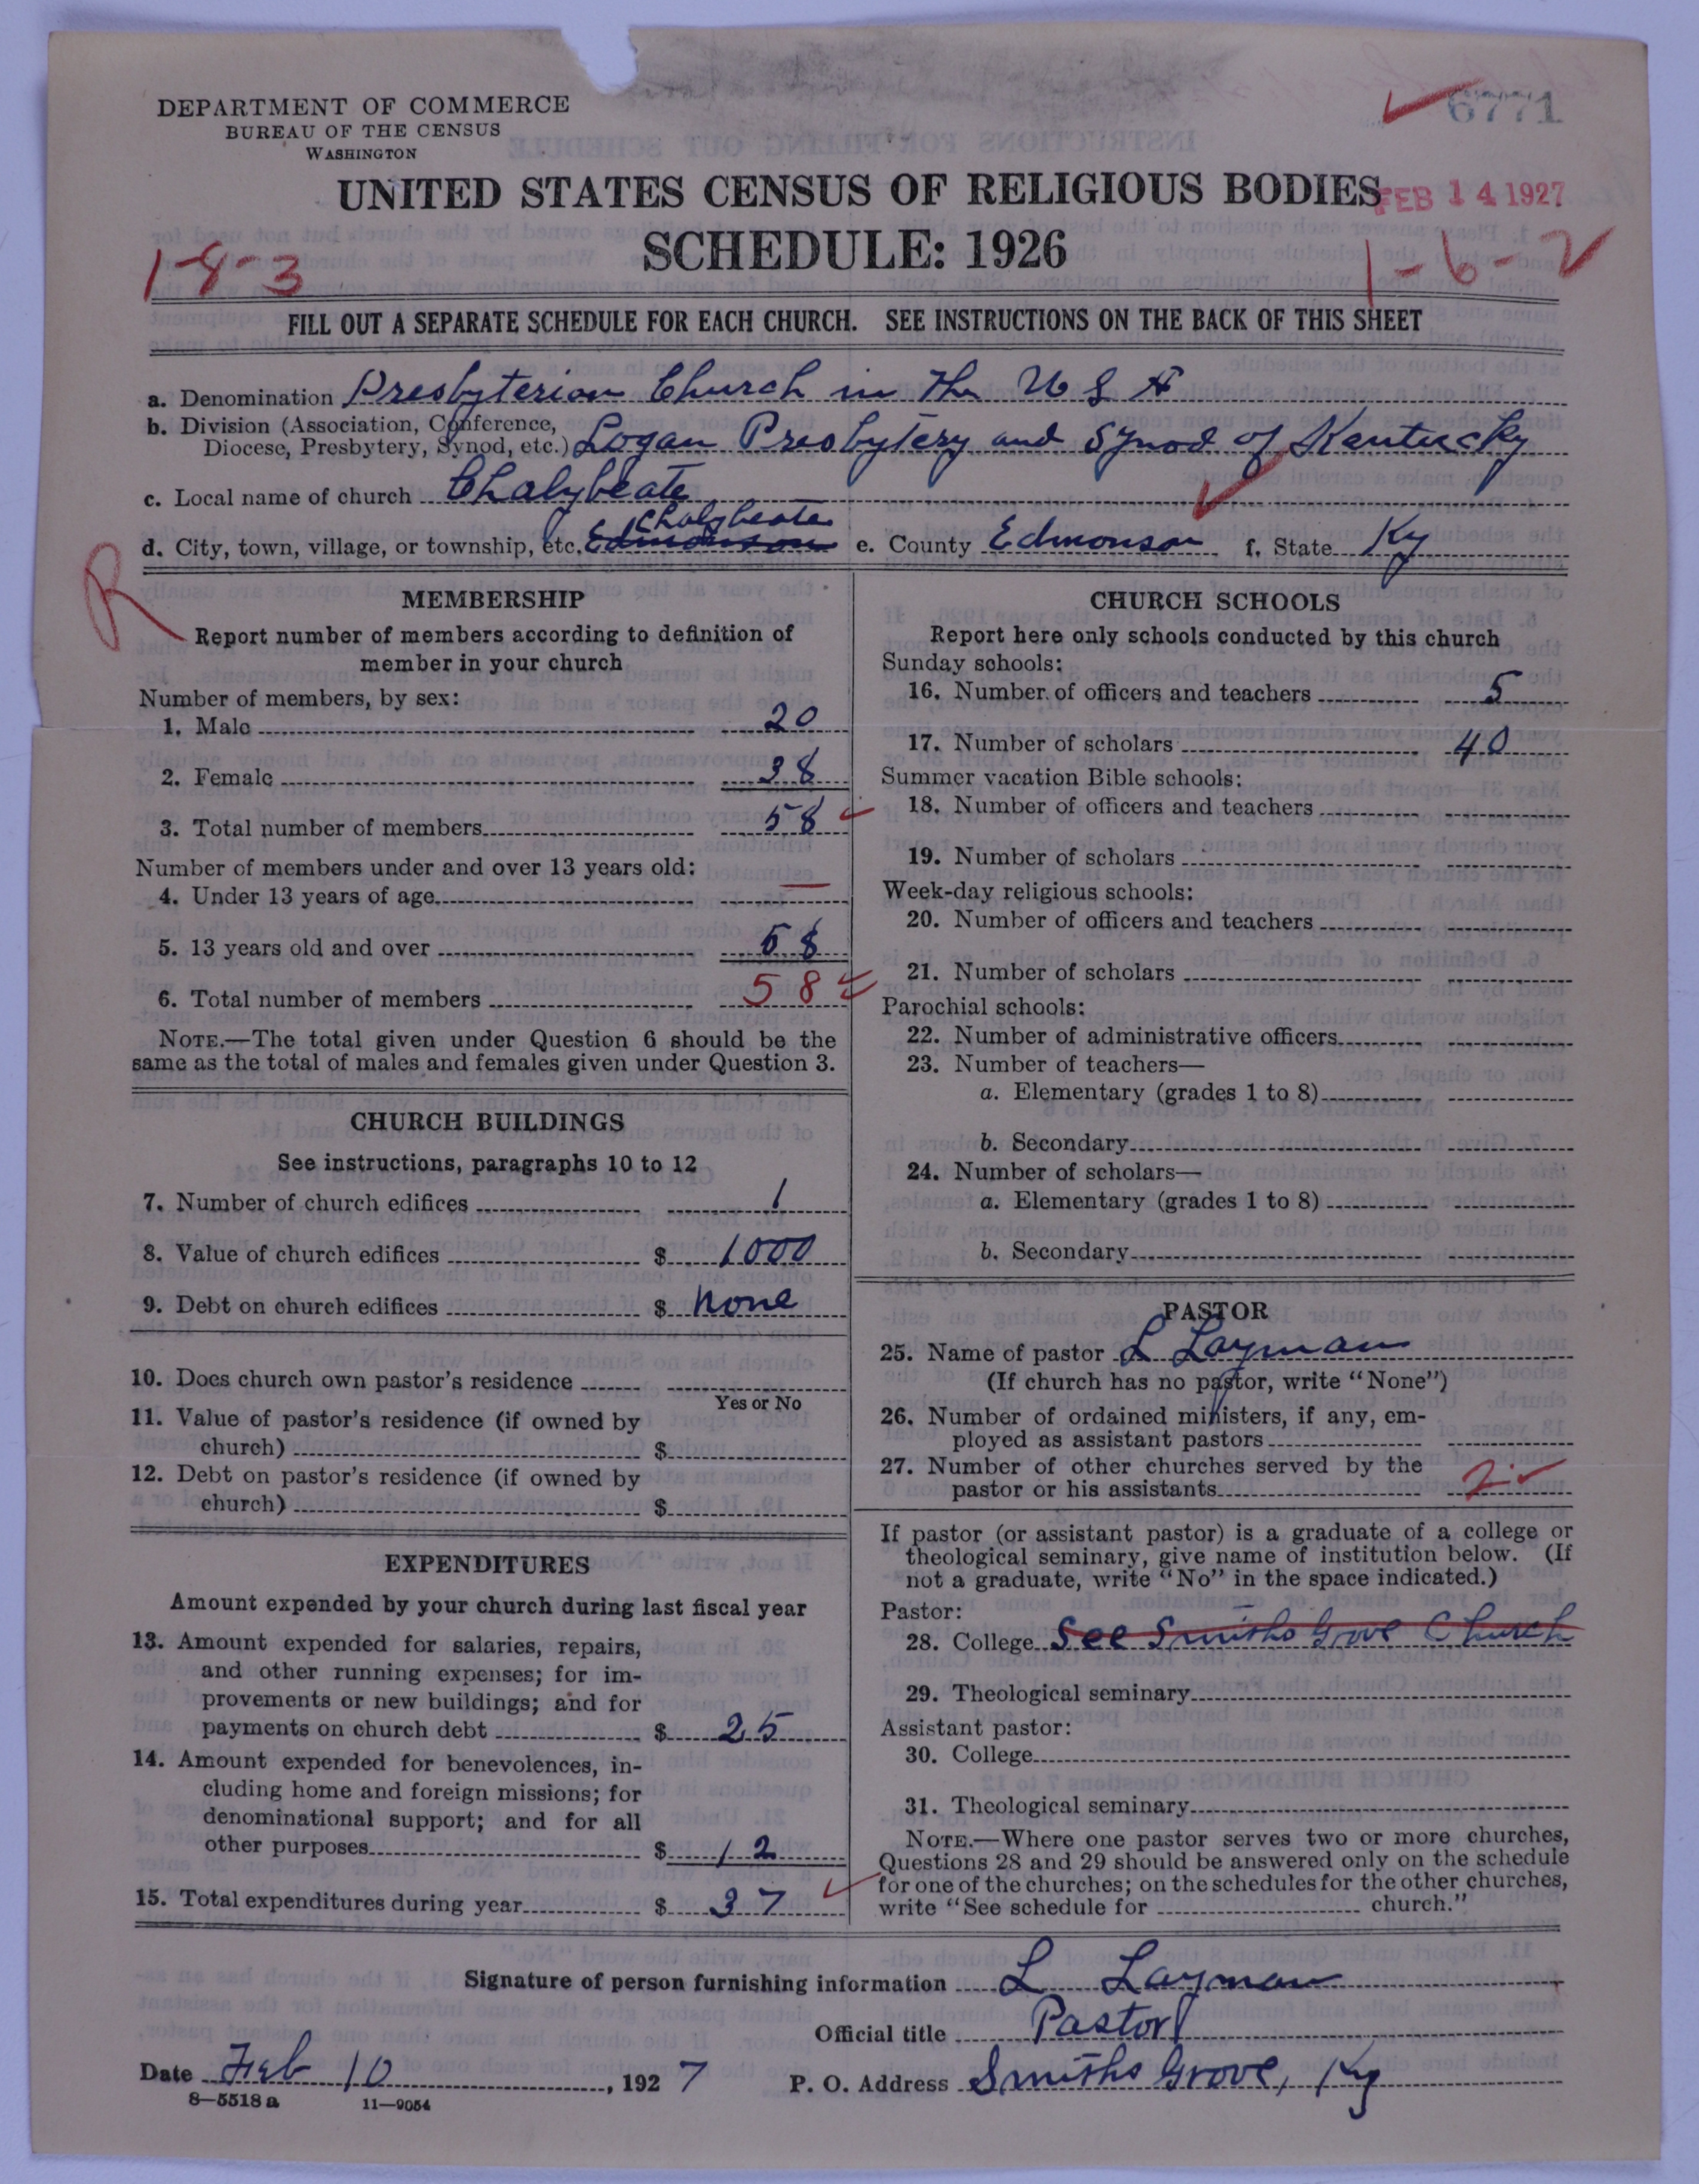 DEPARTMENT OF COMMERCE
BUREAU OF THE CENSUS
WASHINGTON
6771
UNITED STATES CENSUS OF RELIGIOUS BODIES
FEB 14 1927
SCHEDULE: 1926
1-8-3
1-6-2
FILL OUT A SEPARATE SCHEDULE FOR EACH CHURCH. SEE INSTRUCTIONS ON THE BACK OF THIS SHEET
a. Denomination Presbyterian Church in the U S A
b. Division (Association, Conference,
Diocese, Presbytery, Synod, etc.) Logan Presbytery and Synod of Kentucky
c. Local name of church Chalybeate
Chalybeate
d. City, town, village, or township, etc. Edmonson e. County Edmonson f. State Ky
R
MEMBERSHIP
Report number of members according to definition of
member in your church
Number of members, by sex:
1. Male 20
2. Female 38
3. Total number of members 58
Number of members under and over 13 years old:
4. Under 13 years of age —
5. 13 years old and over 58
6. Total number of members 58
NOTE.—The total given under Question 6 should be the
same as the total of males and females given under Question 3.
CHURCH BUILDINGS
See instructions, paragraphs 10 to 12
7. Number of church edifices 1
8. Value of church edifices $ 1000
9. Debt on church edifices $ none
10. Does church own pastor's residence
Yes or No
11. Value of pastor's residence (if owned by
church) $
12. Debt on pastor's residence (if owned by
church) $
EXPENDITURES
Amount expended by your church during last fiscal year
13. Amount expended for salaries, repairs,
and other running expenses; for im-
provements or new buildings; and for
payments on church debt $ 25
14. Amount expended for benevolences, in-
cluding home and foreign missions; for
denominational support; and for all
other purposes $ 12
15. Total expenditures during year $ 37
CHURCH SCHOOLS
Report here only schools conducted by this church
Sunday schools:
16. Number of officers and teachers 5
17. Number of scholars 40
Summer vacation Bible schools:
18. Number of officers and teachers
19. Number of scholars
Week-day religious schools:
20. Number of officers and teachers
21. Number of scholars
Parochial schools:
22. Number of administrative officers
23. Number of teachers—
a. Elementary (grades 1 to 8)
b. Secondary
24. Number of scholars—
a. Elementary (grades 1 to 8)
b. Secondary
PASTOR
25. Name of pastor L Layman
(If church has no pastor, write "None")
26. Number of ordained ministers, if any, em-
ployed as assistant pastors
27. Number of other churches served by the
pastor or his assistants 2
If pastor (or assistant pastor) is a graduate of a college or
theological seminary, give name of institution below. (If
not a graduate, write "No" in the space indicated.)
Pastor:
28. College See Smiths Grove Church
29. Theological seminary
Assistant pastor:
30. College
31. Theological seminary
NOTE.—Where one pastor serves two or more churches,
Questions 28 and 29 should be answered only on the schedule
for one of the churches; on the schedules for the other churches,
write "See schedule for church."
Signature of person furnishing information L Layman
Official title Pastor
Date Feb 10, 1927 P. O. Address Smiths Grove, Ky
8—5518 a 11—9054